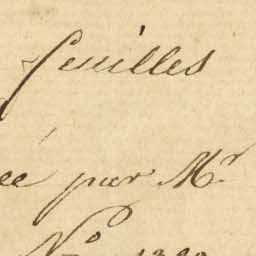 feuilles
ée par Mr
No